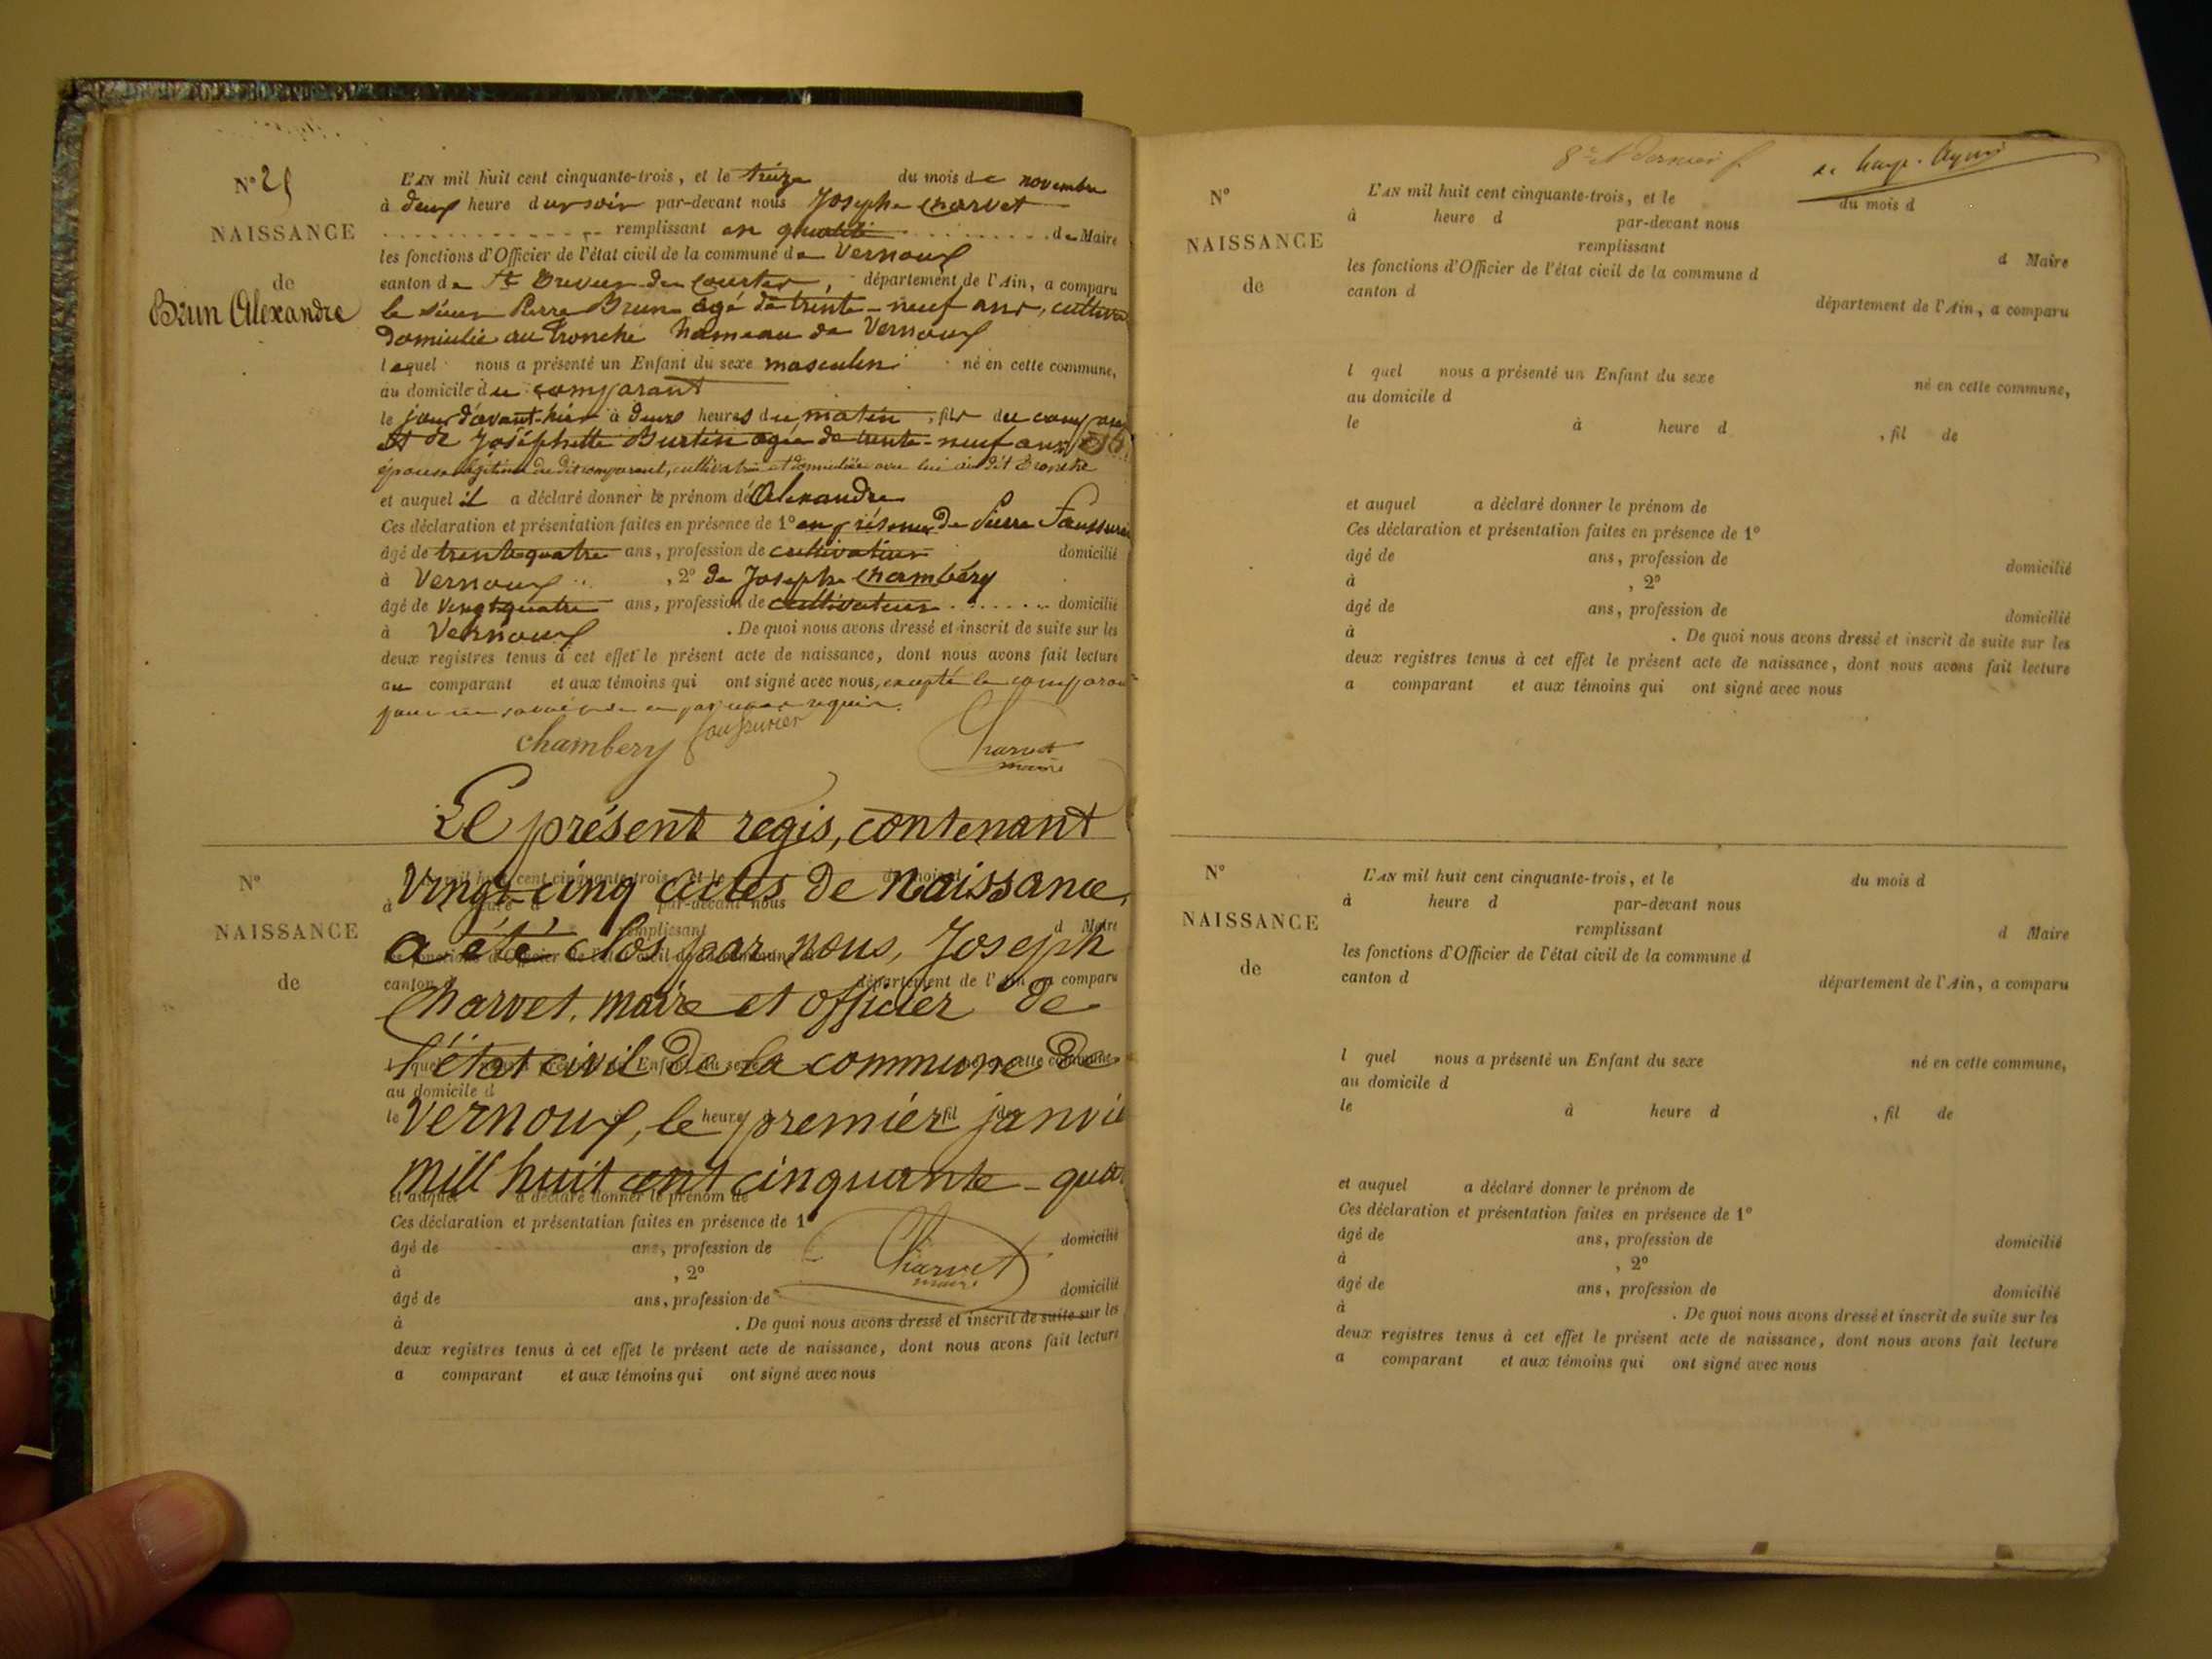 N° 25
NAISSANCE
de
Brun Alexandre
L'AN mil huit cent cinquante-trois, et le treize du mois de novembre
à deux heure du soir par-devant nous Joseph Charvet
remplissant en qualité de Maire
les fonctions d'Officier de l'état civil de la commune de Vernoux
canton de St Trivier de Courtes, département de l'Ain, a comparu
le sieur Pierre Brun agé de trente-neuf ans, cultiva
domicilié au Tronché hameau de Vernoux
lequel nous a présenté un Enfant du sexe masculin né en cette commune,
au domicile du comparant
le jour d'avant-hier à deux heures du matin, fils du compara
et de Joséphette Burtin agée de trente-neuf ans
épouse légitime du dit comparant, cultivatrice et domiciliée avec lui au dit Tronché
et auquel il a déclaré donner le prénom de Alexandre
Ces déclaration et présentation faites en présence de 1° en présence de Pierre Faussurier
âgé de trente quatre ans, profession de cultivateur domicilié
à Vernoux, 2° de Joseph Chambéry
âgé de vingt quatre ans, profession de cultivateur domicilié
à Vernoux. De quoi nous avons dressé et inscrit de suite sur les
deux registres tenus à cet effet le présent acte de naissance, dont nous avons fait lecture
au comparant et aux témoins qui ont signé avec nous, excepté le comparant
pour ne savoir de ce par nous requis.
Chambery Faussurier Charvet
maire
Le présent regis, contenant
Vingt-cinq actes de naissance
a été clos par nous, Joseph
Charvet, maire et officier de
l'état civil de la commune de
Vernoux, le premier janvie
mill huit cent cinquante-quat
Charvet
maire
N°
NAISSANCE
de
cent cinquante-trois, et le
à par-devant nous
remplissant d Maire
canton département de l'Ain, a comparu
au domicile d
le heure fil de
et auquel a déclaré donner le prénom de
Ces déclaration et présentation faites en présence de 1°
âgé de ans, profession de domicilié
à , 2°
âgé de ans, profession de domicilié
à . De quoi nous avons dressé et inscrit de suite sur les
deux registres tenus à cet effet le présent acte de naissance, dont nous avons fait lecture
a comparant et aux témoins qui ont signé avec nous
N°
NAISSANCE
de
L'AN mil huit cent cinquante-trois, et le du mois d
à heure d par-devant nous
remplissant d Maire
les fonctions d'Officier de l'état civil de la commune d
canton d département de l'Ain, a comparu
l quel nous a présenté un Enfant du sexe né en cette commune,
au domicile d
le à heure d , fil de
et auquel a déclaré donner le prénom de
Ces déclaration et présentation faites en présence de 1°
âgé de ans, profession de domicilié
à , 2°
âgé de ans, profession de domicilié
à . De quoi nous avons dressé et inscrit de suite sur les
deux registres tenus à cet effet le présent acte de naissance, dont nous avons fait lecture
a comparant et aux témoins qui ont signé avec nous
N°
NAISSANCE
de
L'AN mil huit cent cinquante-trois, et le du mois d
à heure d par-devant nous
remplissant d Maire
les fonctions d'Officier de l'état civil de la commune d
canton d département de l'Ain, a comparu
l quel nous a présenté un Enfant du sexe né en cette commune,
au domicile d
le à heure d , fil de
et auquel a déclaré donner le prénom de
Ces déclaration et présentation faites en présence de 1°
âgé de ans, profession de domicilié
à , 2°
âgé de ans, profession de domicilié
à . De quoi nous avons dressé et inscrit de suite sur les
deux registres tenus à cet effet le présent acte de naissance, dont nous avons fait lecture
a comparant et aux témoins qui ont signé avec nous